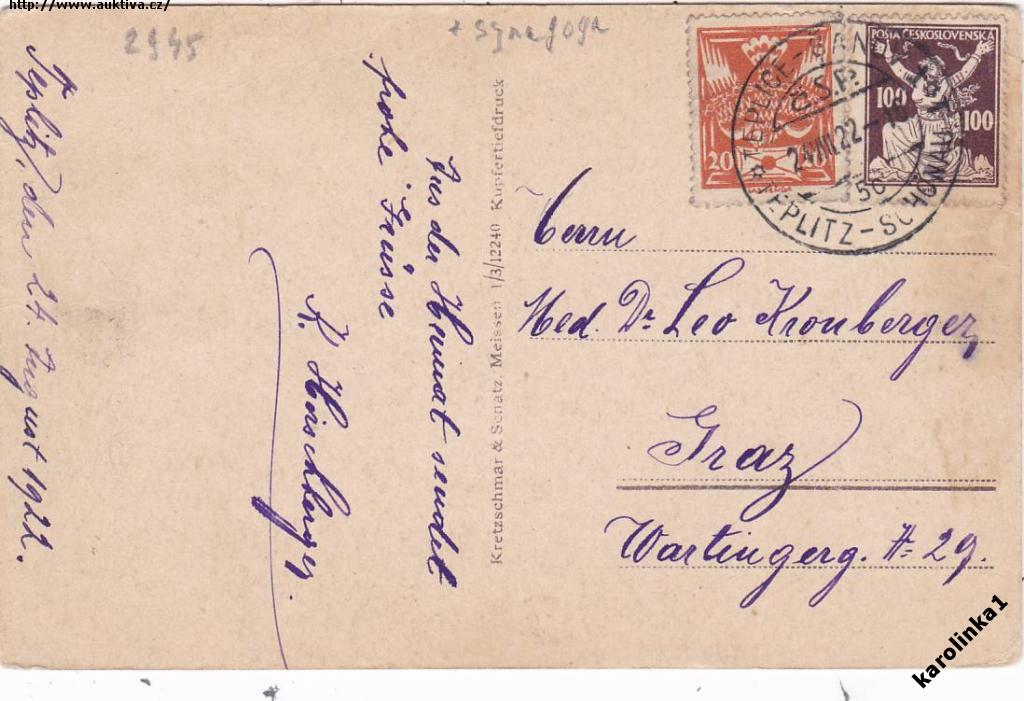 http://www.auktiva.cz/
2945
+ synagoga
Teplitz, den 24. August 1922.
Aus der Heimat sendet
frohe Grüsse
K. Hirschberger.
Kretzschmar & Schatz, Meissen 1/3/12240 Kupfertiefdruck
POŠTA ČESKOSLOVENSKÁ
100 100
20
TEPLICE-ŠANOV
Č.S.P.
24.VIII.22-10
5c
TEPLITZ-SCHÖNAU
Herrn
Med. Dr Leo Kronberger,
Graz
Wartingerg. № 29.
karolinka1